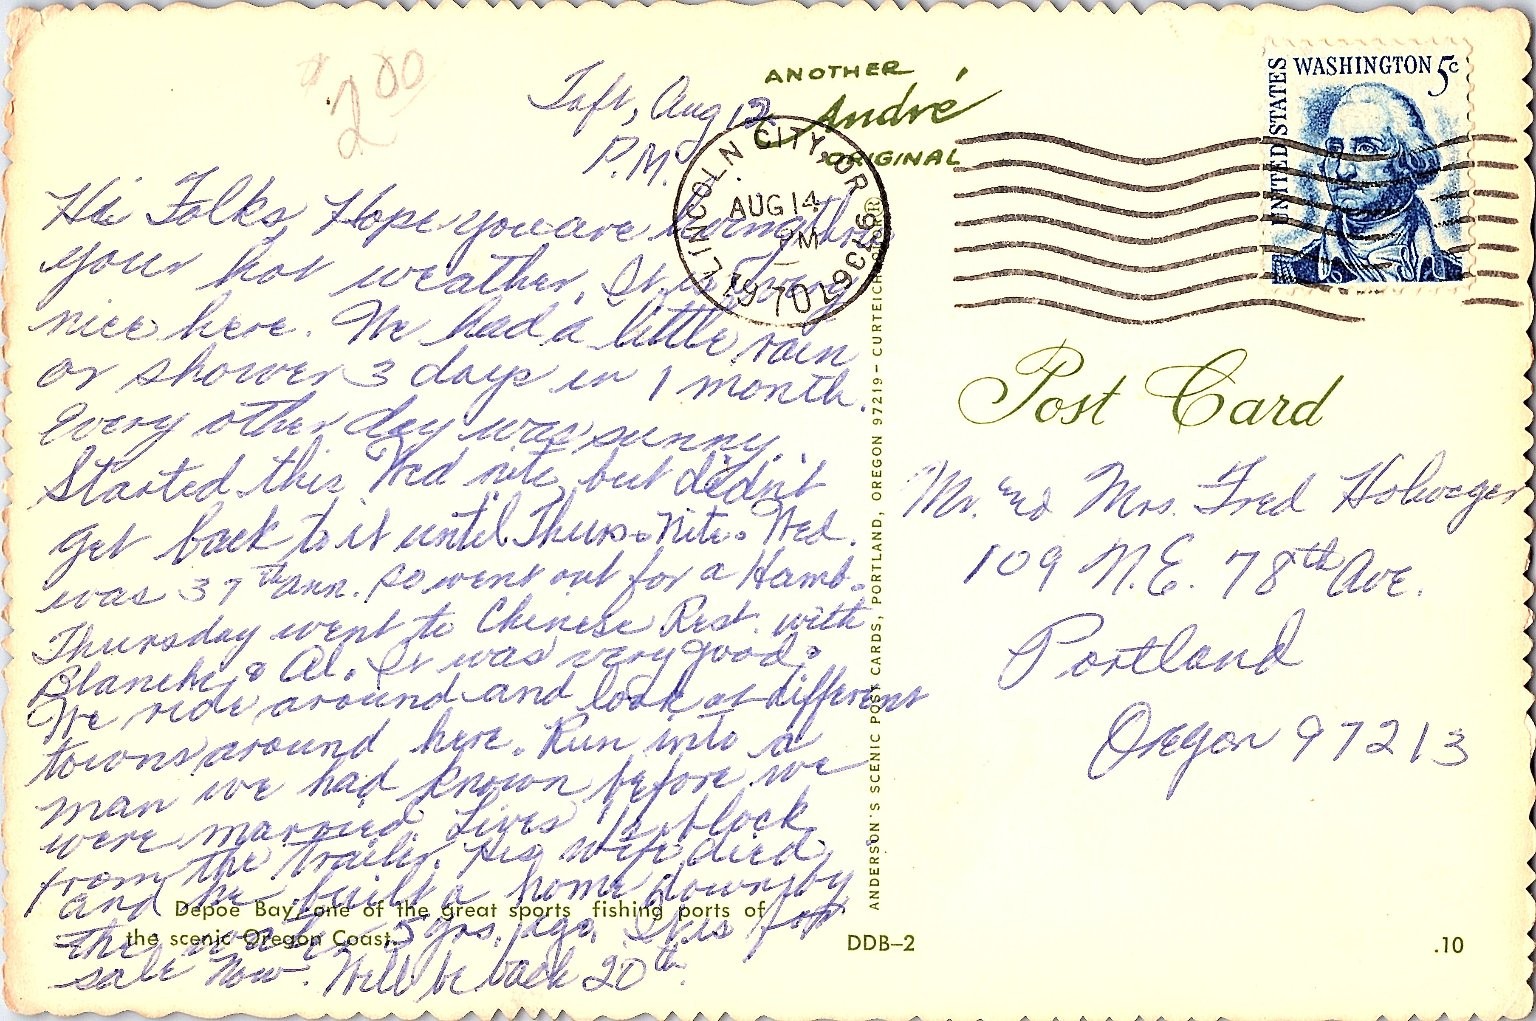 $2.00
Taft, Aug 12
P.M.
ANOTHER
André
ORIGINAL
LINCOLN CITY, OR 97367
AUG 14
PM
1970
UNITED STATES
WASHINGTON 5c
Hi Folks, Hope you are
your hot weather. It is very
nice here. We had a little rain
or shower 3 days in 1 month.
Every other day was sunny.
Started this Wed nite, but didn't
get back to it until Thurs. Nite. Wed.
was 37th ann. so went out for a Hamb.
Thursday went to Chinese Rest. with
Blanche & Al. It was very good.
We ride around and look at different
towns around here. Run into a
man we had known before we
were married. Lives block
from the trailer. His wife died
and he built a home down by
the 5 yrs. ago. It is for
sale now. Will be back 20th.
Depoe Bay, one of the great sports fishing ports of
the scenic Oregon Coast.
ANDERSON'S SCENIC POST CARDS, PORTLAND, OREGON 97219 - CURTEICHCOLOR®
DDB-2
Post Card
Mr. and Mrs. Fred
109 N.E. 78th Ave.
Portland
Oregon 97213
.10